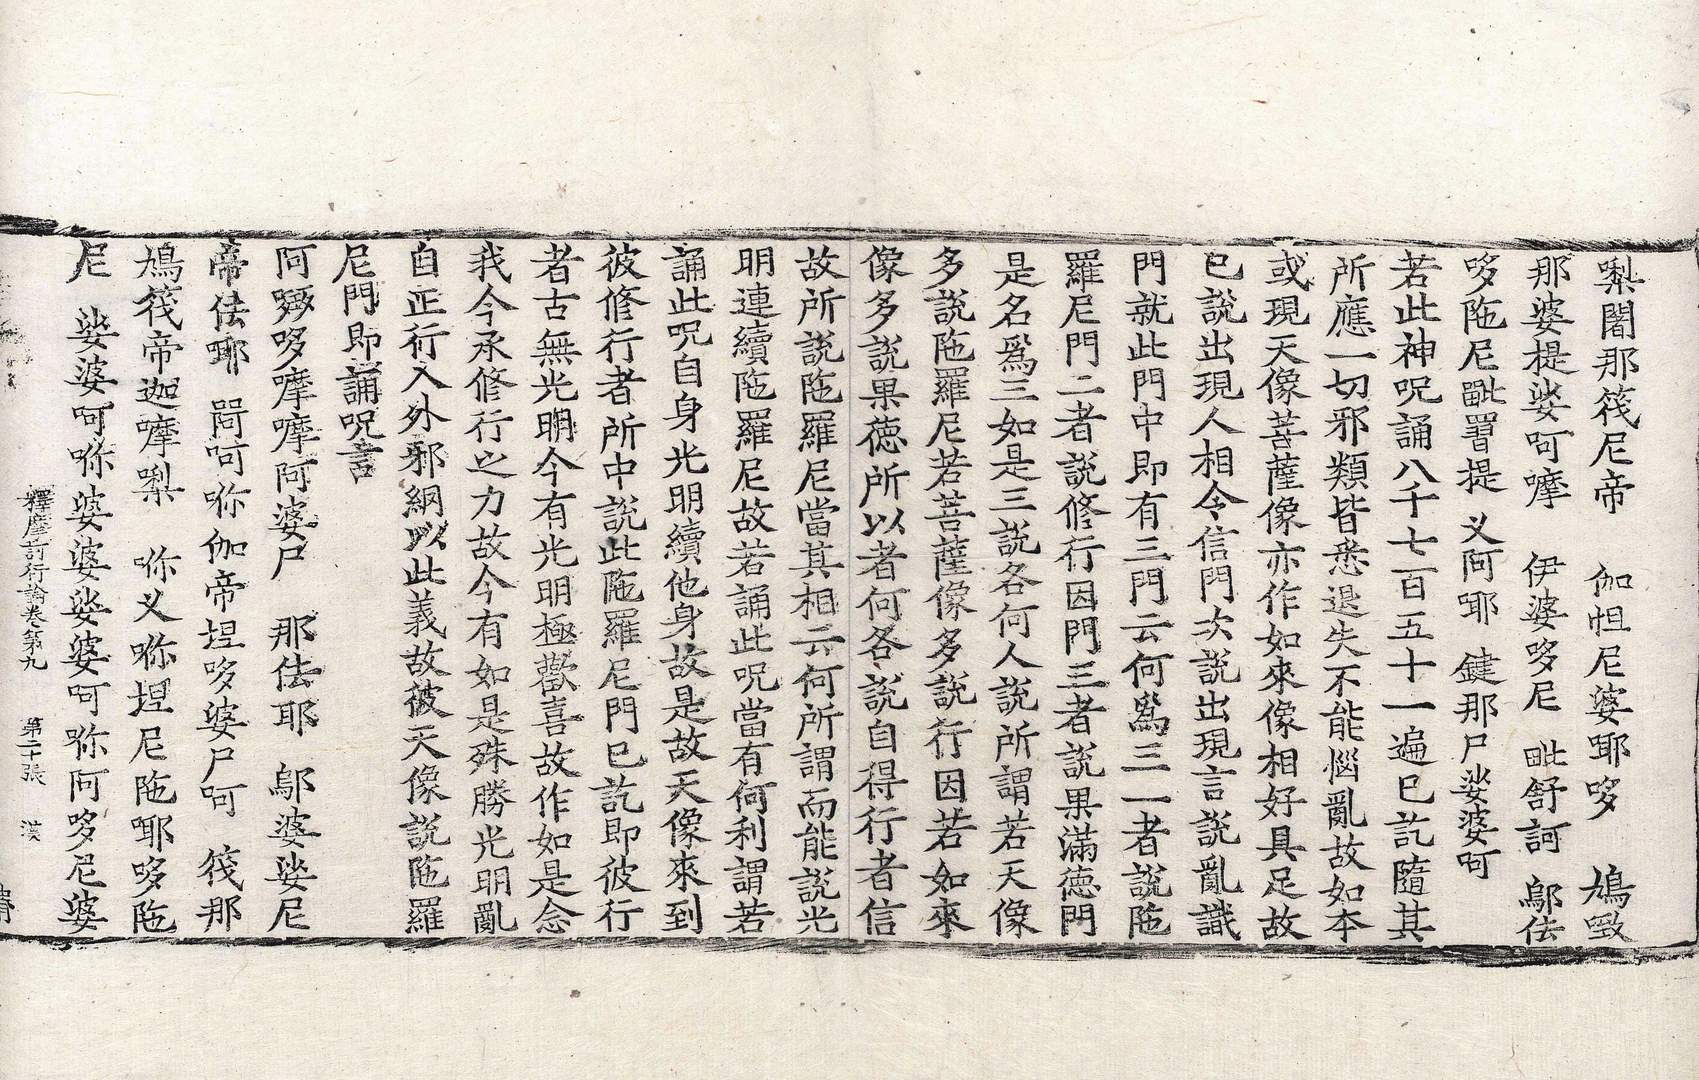 㗚闍那筏尼帝　伽怛尼婆㖿哆　鳩
那婆提娑呵摩　伊婆哆尼　毗舒訶　鄔佉
哆陁尼毗提　乂阿㖿　鍵那尸娑婆呵
若此神呪誦八千七百五十一遍已訖隨其
所應一切邪類皆悉退失不能惱亂故如本
或現天像菩薩像亦作如來像相好具足故
已說出現人相令信門次說出現言說亂識
門就此門中即有三門云何爲三一者說陁
羅尼門二者說修行因門三者說果滿德門
是名爲三如是三說各何人說所謂若天像
多說陁羅尼若菩薩像多說行因若如來
像多說果德所以者何各說自得行者信
故所說陁羅尼當其相云何所謂而能說光
明連續陁羅尼故若誦此呪當有何利謂若
誦此呪自身光明續他身故是故天像來到
彼修行者所中說此陁羅尼門已訖即彼行
者古無光明今有光明極歡喜故作如是念
我今承修行之力故今有如是殊勝光明亂
自正行入外邪網以此義故彼天像說陁羅
尼門即誦呪言
阿哆摩摩阿婆尸　那佉耶　鄔婆娑尼
帝佉㖿　呵㖇伽帝坦哆婆尸呵　筏那
鳩筏帝迦摩㗚　㖇乂㖇坦尼陁㖿哆陁
尼　娑婆呵㖇婆婆娑婆呵㖇阿哆尼婆
釋摩訶衍論卷第九　第二十張　漢